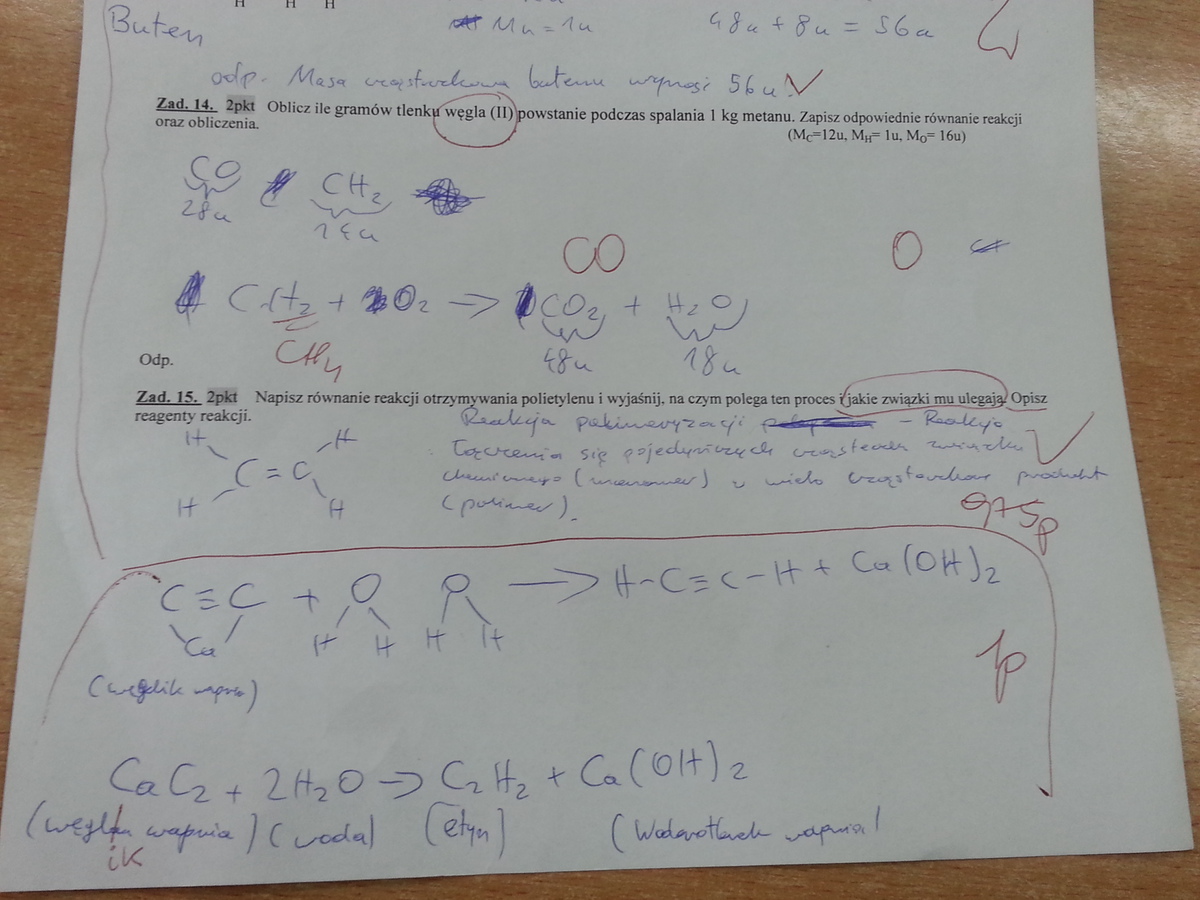 H H H
Buten
MH = 1u
48u + 8u = 56u
odp. Masa cząsteczkowa butenu wynosi 56u
Zad. 14. 2pkt Oblicz ile gramów tlenku węgla (II) powstanie podczas spalania 1 kg metanu. Zapisz odpowiednie równanie reakcji
oraz obliczenia. (MC=12u, MH= 1u, MO= 16u)
CO CH2
28u 14u
CO O
CH2 + O2 → CO2 + H2O
CH4
48u 18u
Odp.
Zad. 15. 2pkt Napisz równanie reakcji otrzymywania polietylenu i wyjaśnij, na czym polega ten proces i jakie związki mu ulegają. Opisz
reagenty reakcji.
Reakcja polimeryzacji – Reakcja
łączenia się pojedynczych cząsteczek związku
chemicznego (monomer) w produkt
(polimer).
H H
C = C
H H
9,75p
C ≡ C + O O → H-C≡C-H + Ca(OH)2
Ca H H H H
1p
(węglik wapnia)
CaC2 + 2H2O → C2H2 + Ca(OH)2
(wapnia) (woda) (etyn) (Wodorotlenek wapnia)
ik